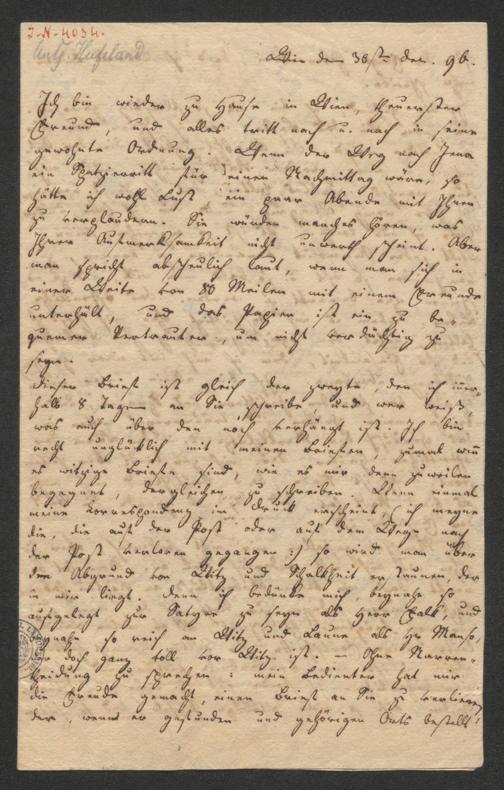 I.N. 4034.
Antg. Hufeland
Wien den 30st. Dez. 96.
Ich bin wieder zu Hause in Wien, theuerster
Freund, und alles tritt nach u. nach in seine
gewohnte Ordnung. Wenn der Weg nach Jena
ein Spatzierritt für einen Nachmittag wäre, so
hätte ich wohl Lust ein paar Abende mit Ihnen
zu verplaudern. Sie würden manches hören, was
Ihrer Aufmerksamkeit nicht unwerth scheint. Aber
man spricht abscheulich laut, wenn man sich in
einer Weite von 80 Meilen mit einem Freunde
unterhält, und das Papier ist ein zu be-
quemer Vertrauter, um nicht verdächtig zu
seyn.
Dieser Brief ist gleich der zweyte, den ich inner-
halb 8 Tagen an Sie schreibe, und wer weiß,
was auch über den noch verhängt ist. Ich bin
recht unglücklich mit meinen Briefen, zumal wenn
es witzige Briefe sind, wie es mir denn zuweilen
begegnet, dergleichen zu schreiben. Wenn einmal
meine Korrespondenz im Druck erscheint, (ich meyne
die, die auf der Post oder auf dem Wege nach
der Post verloren gegangen:) so wird man über
den Abgrund von Witz und Schalkheit erstaunen, der
in mir liegt. Denn ich bedünke mich, beynahe so
aufgelegt zur Satyre zu seyn als Herr Falk, und
beynahe so reich an Witz und Laune als Hr Manso,
der doch ganz toll vor Witz ist. — Ohne Narren-
theidung zu sprechen: mein Bedienter hat mir
die Freude gemacht, einen Brief an Sie zu verlieren,
der, wenn er gefunden und gehörigen Orts bestellt